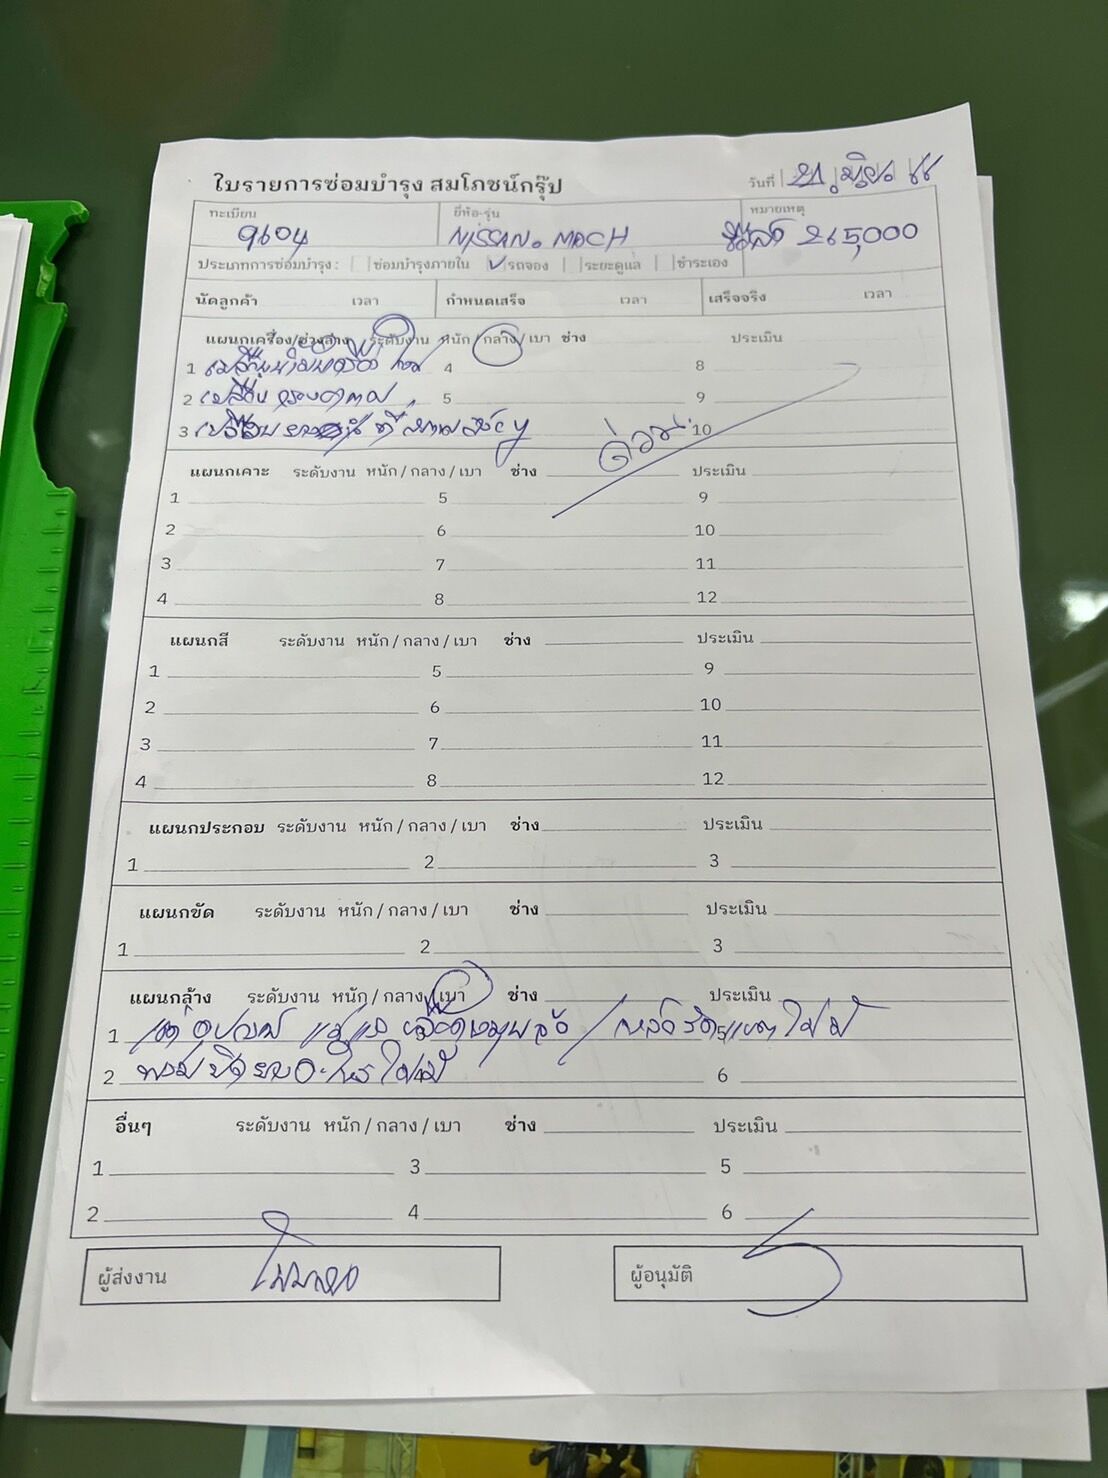 ใบรายการซ่อมบำรุง สมโภชน์กรุ๊ป วันที่
ทะเบียน ยี่ห้อ-รุ่น หมายเหตุ
9604 NISSAN. MACH 265,000
ประเภทการซ่อมบำรุง : ซ่อมบำรุงภายใน ✓ รถจอง ระยะดูแล ชำระเอง
นัดลูกค้า เวลา กำหนดเสร็จ เวลา เสร็จจริง เวลา
แผนกเครื่อง/ช่วงล่าง ระดับงาน หนัก / กลาง / เบา ช่าง ประเมิน
1 เปลี่ยนน้ำมันเครื่อง 4 8
2 เปลี่ยน 5 9
3 เปลี่ยน ด่วน 10
แผนกเคาะ ระดับงาน หนัก / กลาง / เบา ช่าง ประเมิน
1 5 9
2 6 10
3 7 11
4 8 12
แผนกสี ระดับงาน หนัก / กลาง / เบา ช่าง ประเมิน
1 5 9
2 6 10
3 7 11
4 8 12
แผนกประกอบ ระดับงาน หนัก / กลาง / เบา ช่าง ประเมิน
1 2 3
แผนกขัด ระดับงาน หนัก / กลาง / เบา ช่าง ประเมิน
1 2 3
แผนกล้าง ระดับงาน หนัก / กลาง / เบา ช่าง ประเมิน
1
2 6
อื่นๆ ระดับงาน หนัก / กลาง / เบา ช่าง ประเมิน
1 3 5
2 4 6
ผู้ส่งงาน ผู้อนุมัติ